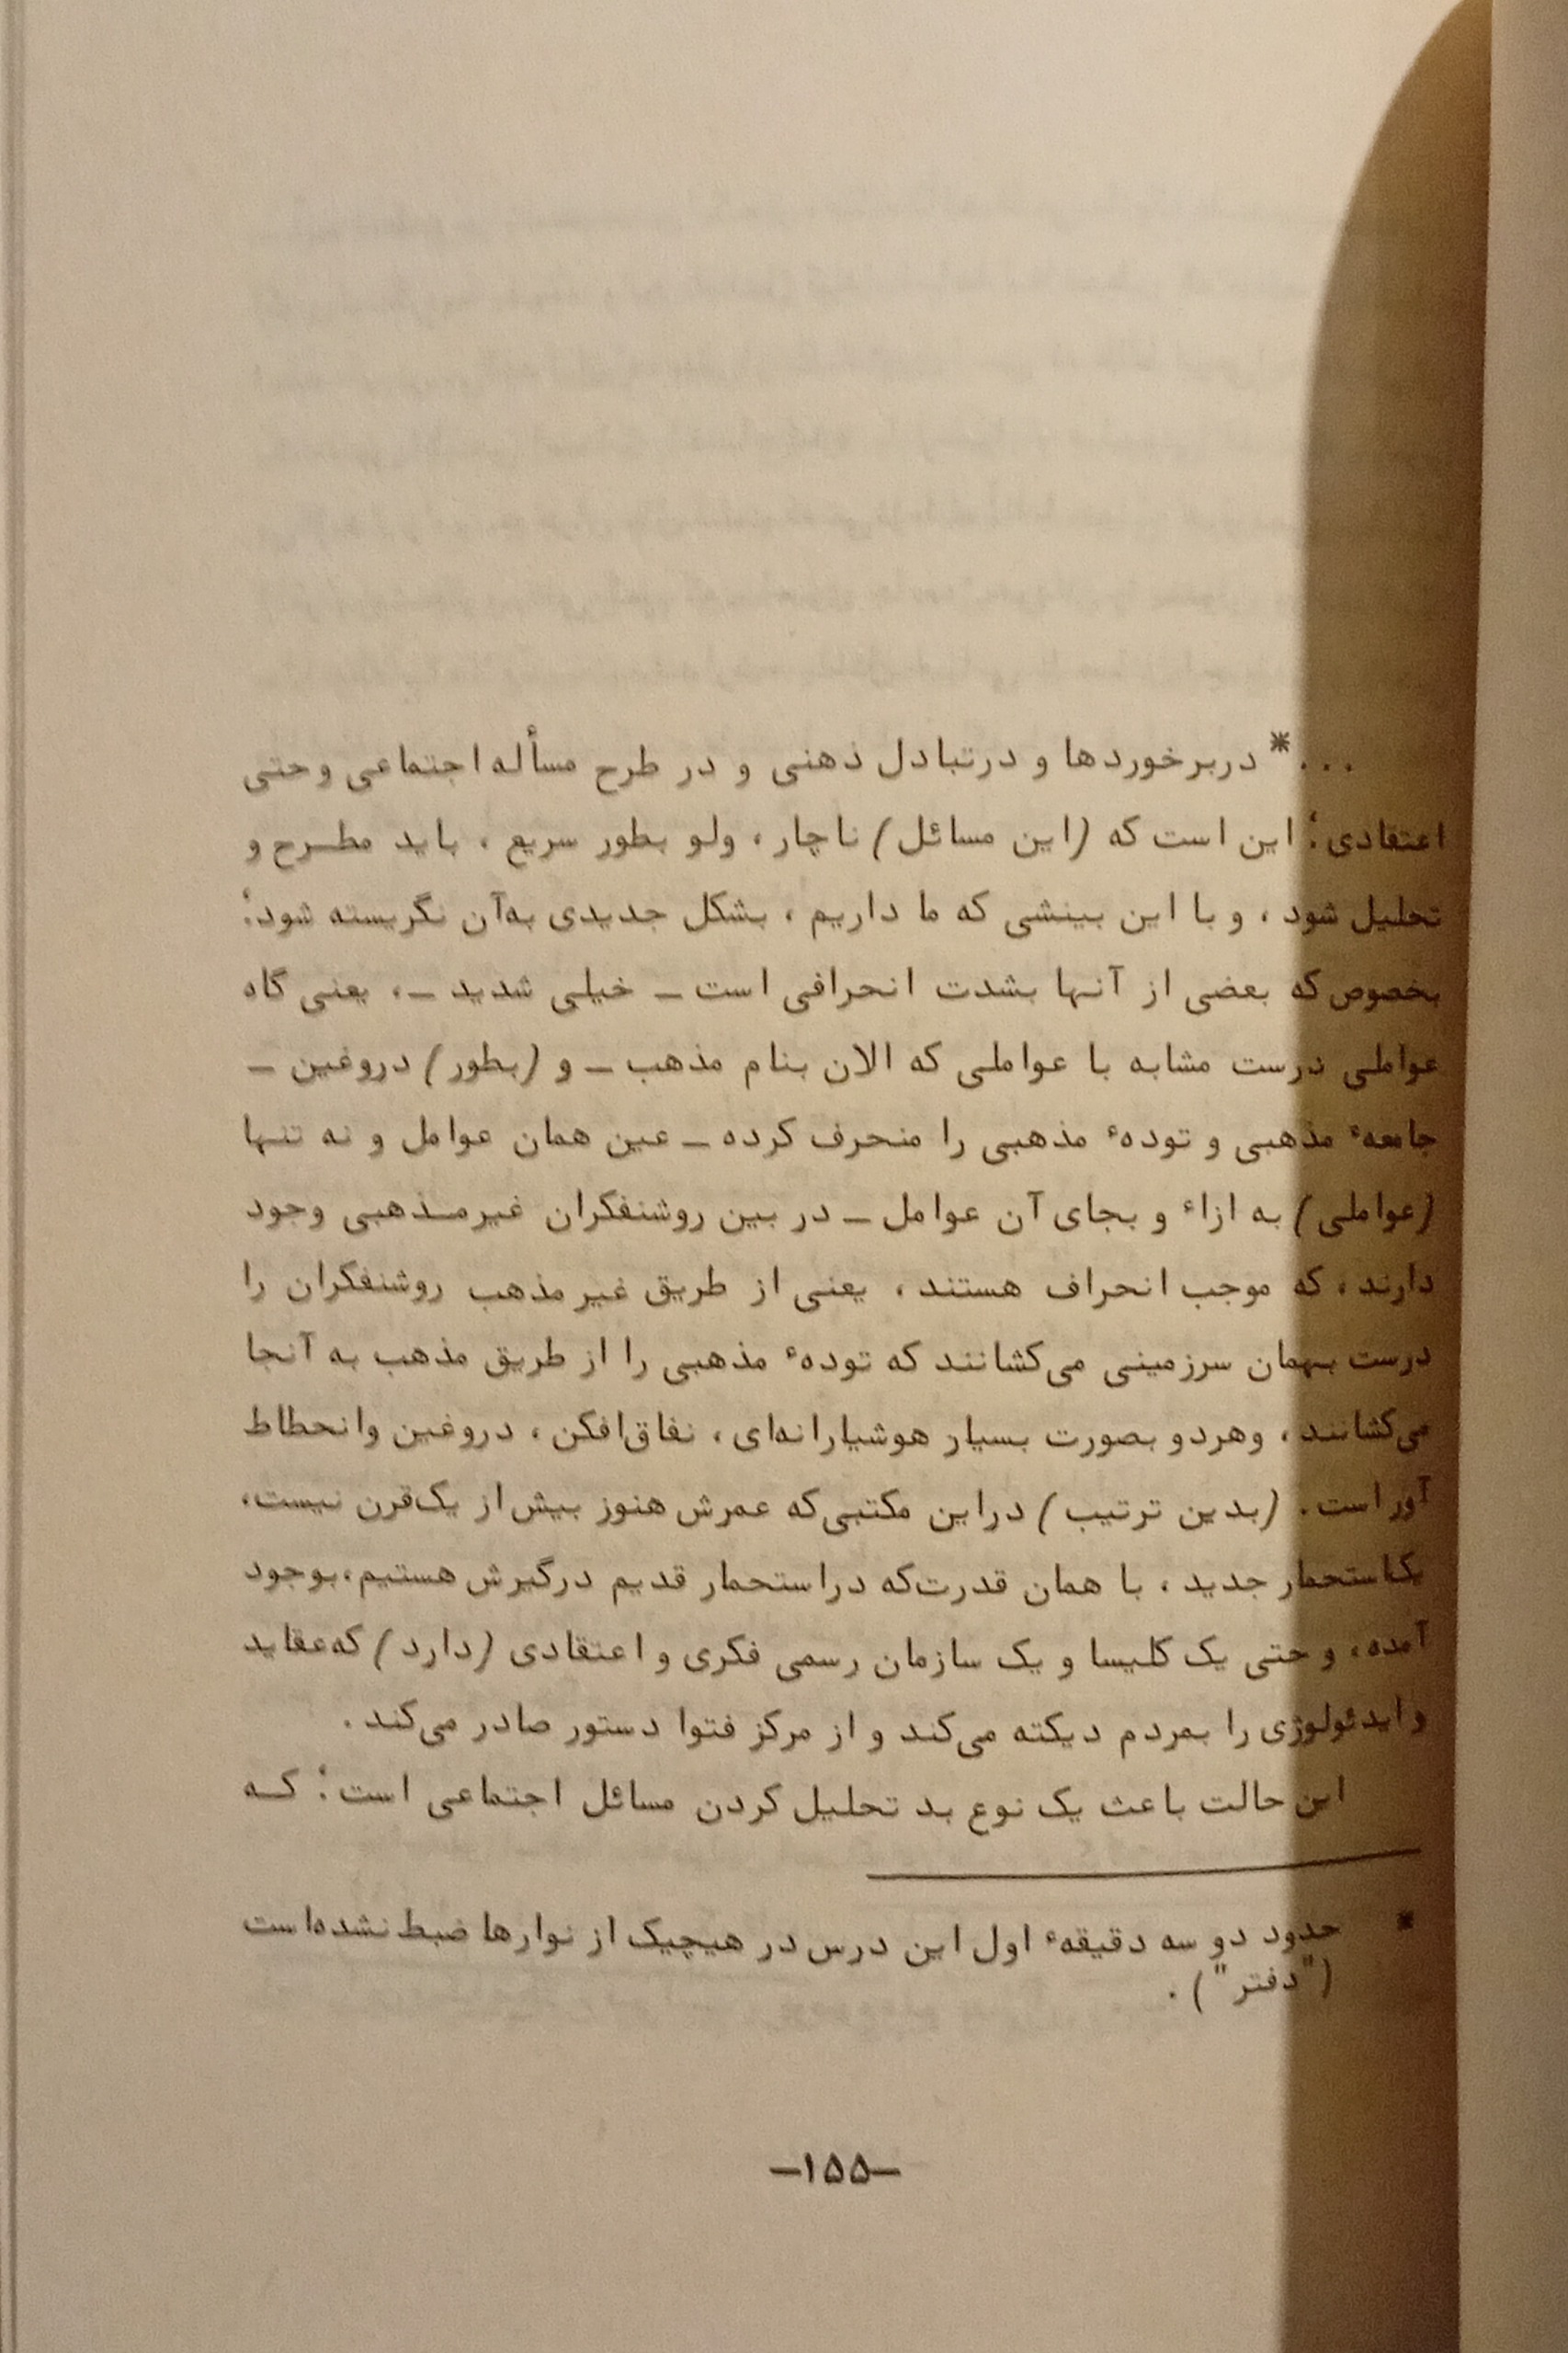 ...* دربرخوردها و درتبادل ذهنی و در طرح مسأله اجتماعی وحتی
اعتقادی؛ این است که (این مسائل) ناچار، ولو بطور سریع، باید مطرح و
تحلیل شود، و با این بینشی که ما داریم، بشکل جدیدی به‌آن نگریسته شود؛
بخصوص که بعضی از آنها بشدت انحرافی است ـ خیلی شدید ـ، یعنی گاه
عواملی درست مشابه با عواملی که الان بنام مذهب ـ و (بطور) دروغین ـ
جامعهٔ مذهبی و تودهٔ مذهبی را منحرف کرده ـ عین همان عوامل و نه تنها
(عواملی) به ازاء و بجای آن عوامل ـ در بین روشنفکران غیرمذهبی وجود
دارند، که موجب انحراف هستند، یعنی از طریق غیر مذهب روشنفکران را
درست بهمان سرزمینی می‌کشانند که تودهٔ مذهبی را از طریق مذهب به آنجا
می‌کشانند، وهردو بصورت بسیار هوشیارانه‌ای، نفاق‌افکن، دروغین وانحطاط
آور است. (بدین ترتیب) دراین مکتبی‌که عمرش هنوز بیش از یک‌قرن نیست،
یک‌استحمار جدید، با همان قدرت‌که دراستحمار قدیم درگیرش هستیم، بوجود
آمده، و حتی یک کلیسا و یک سازمان رسمی فکری و اعتقادی (دارد) که‌عقاید
و ایدئولوژی را بمردم دیکته می‌کند و از مرکز فتوا دستور صادر می‌کند.
این حالت باعث یک نوع بد تحلیل کردن مسائل اجتماعی است؛ که
* حدود دو سه دقیقهٔ اول این درس در هیچیک از نوارها ضبط نشده‌است
("دفتر").
–۱۵۵–